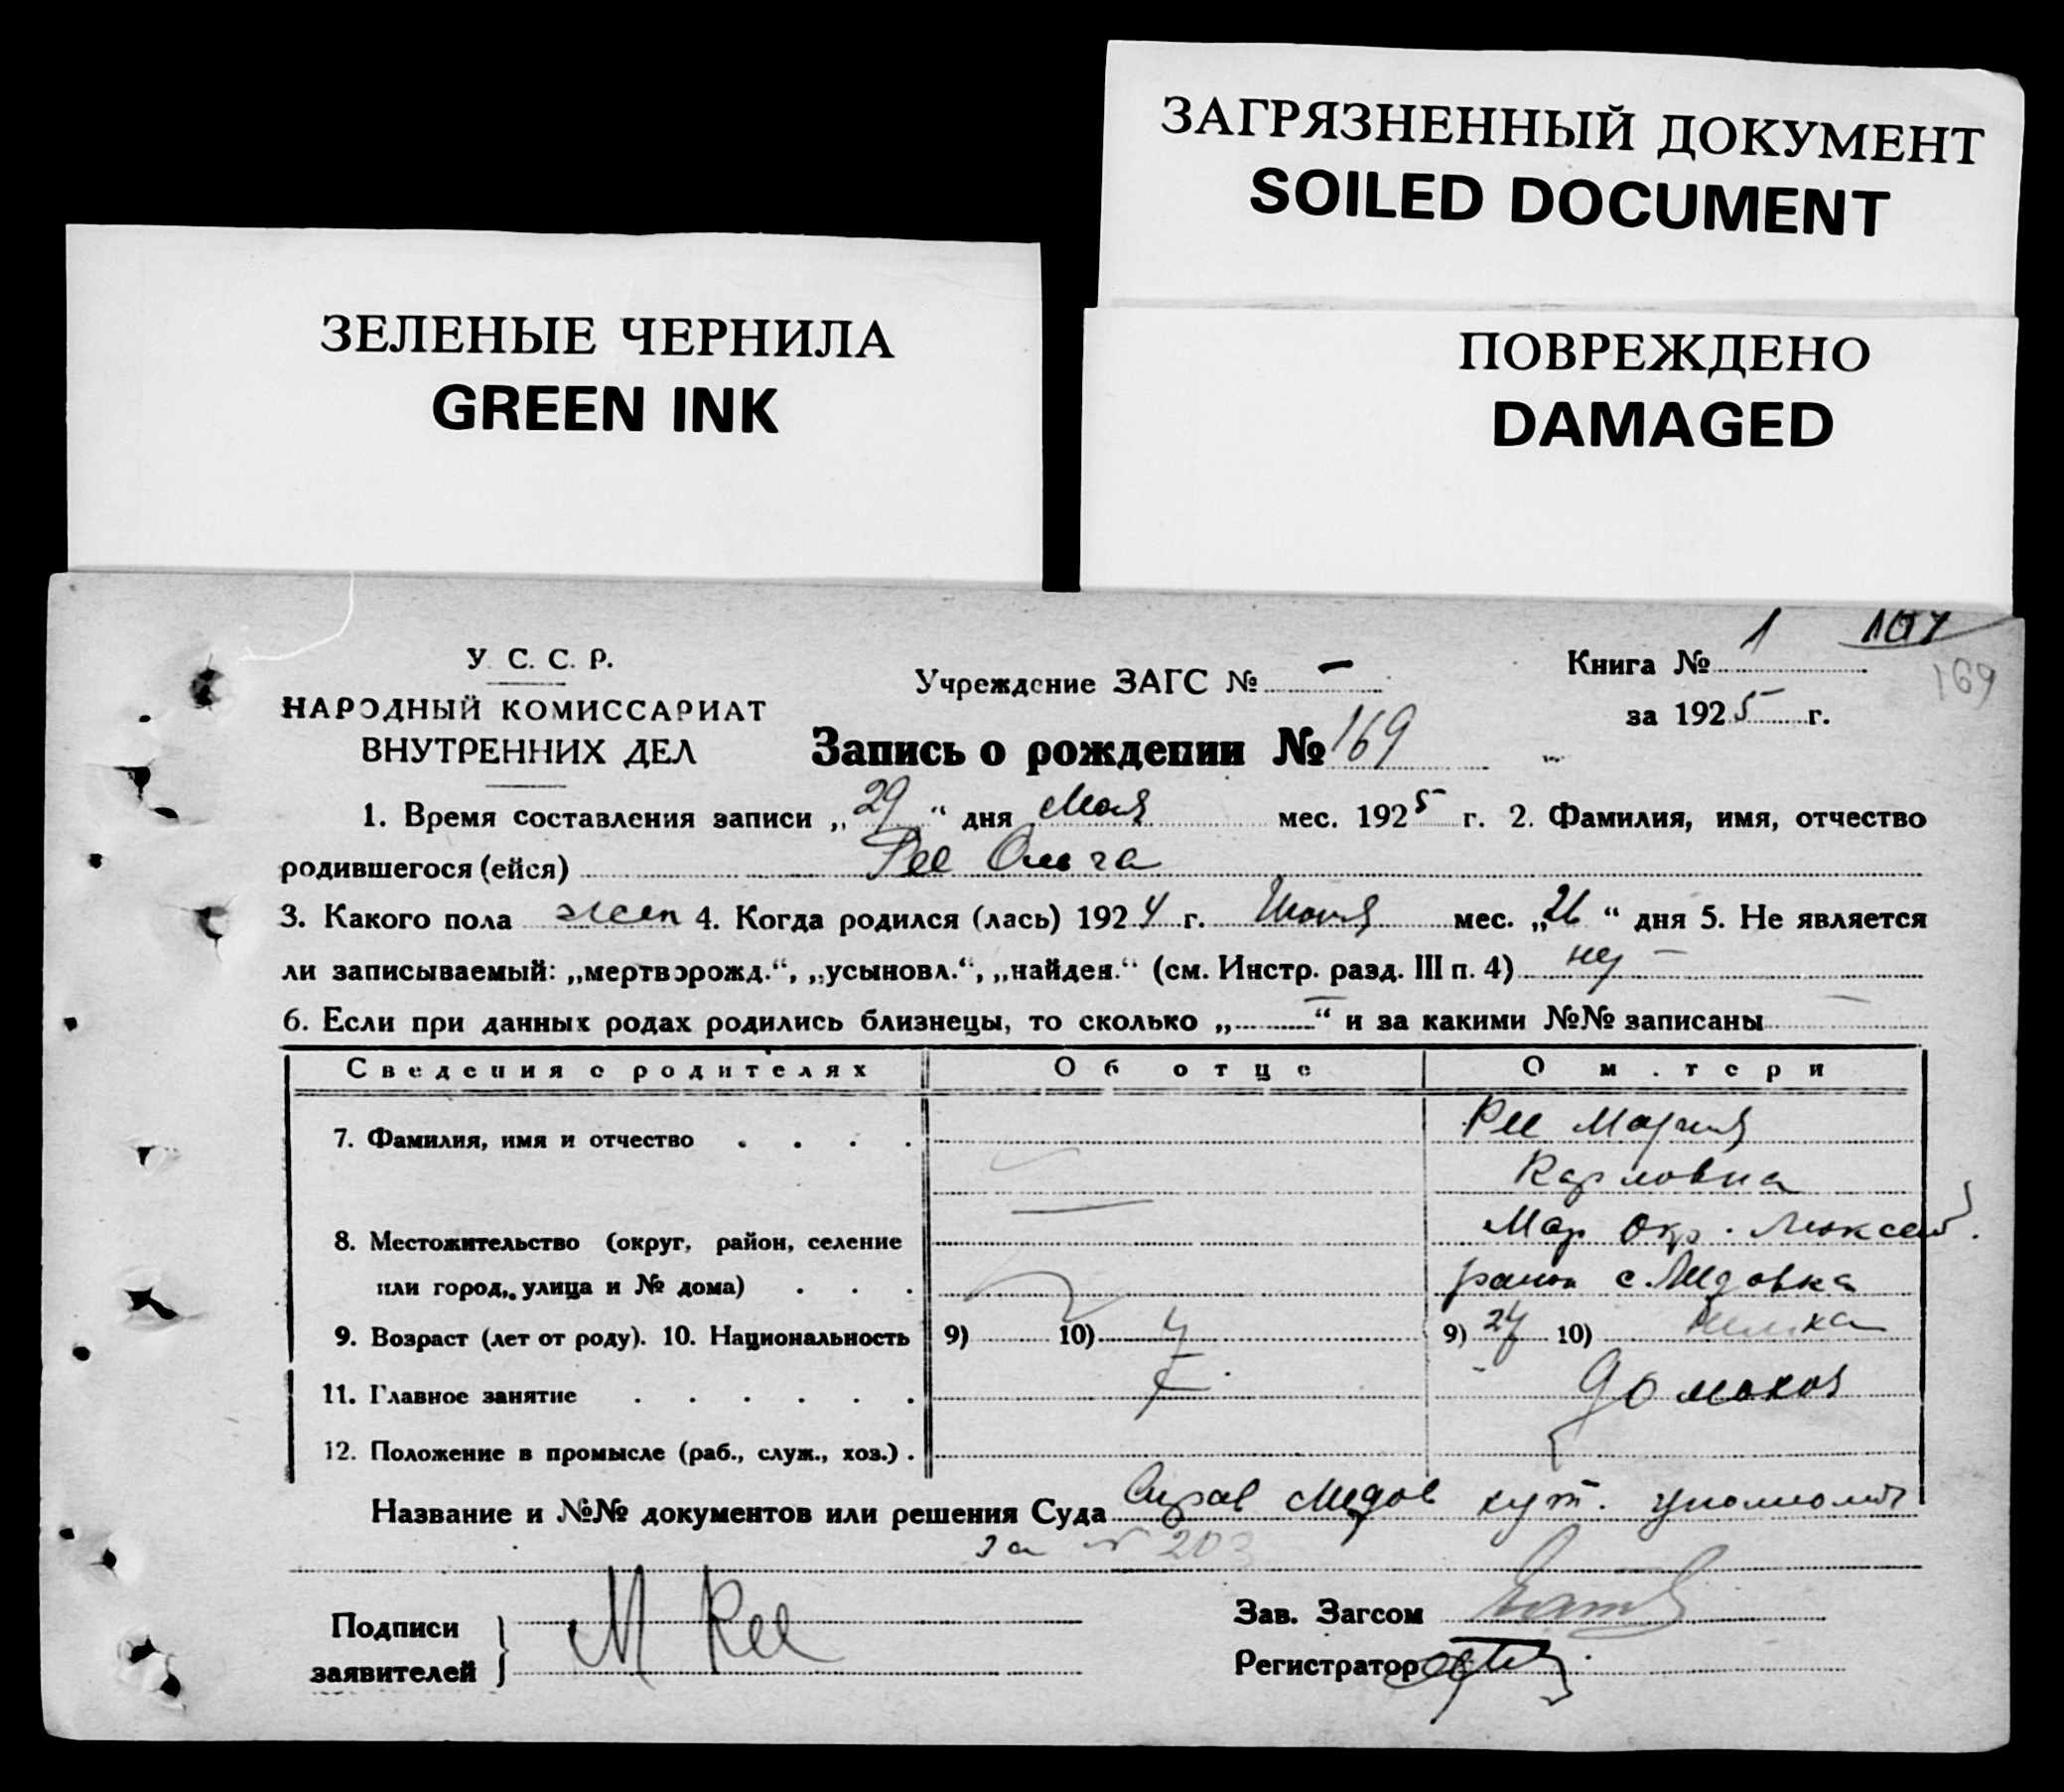 ЗАГРЯЗНЕННЫЙ ДОКУМЕНТ
SOILED DOCUMENT
ЗЕЛЕНЫЕ ЧЕРНИЛА
GREEN INK
ПОВРЕЖДЕНО
DAMAGED
У. С. С. Р.
НАРОДНЫЙ КОМИССАРИАТ
ВНУТРЕННИХ ДЕЛ
Учреждение ЗАГС № —
Книга № 1
169
за 1925 г.
Запись о рождении № 169
1. Время составления записи „29“ дня Мая мес. 1925 г. 2. Фамилия, имя, отчество
родившегося (ейся) Рее Ольга
3. Какого пола жен 4. Когда родился (лась) 1924 г. мес. „26“ дня 5. Не является
ли записываемый: „мертворожд.“, „усыновл.“, „найден.“ (см. Инстр. разд. III п. 4) нет —
6. Если при данных родах родились близнецы, то сколько „—“ и за какими №№ записаны —
Сведения о родителях Об отце О матери
7. Фамилия, имя и отчество . . . . Рее Мария
Карловна
8. Местожительство (округ, район, селение Мар Окр. Люксем.
или город, улица и № дома) . . . район с. Медовка
9. Возраст (лет от роду). 10. Национальность 9) 10) 9) 24 10) Немка
11. Главное занятие . . . . . . домохоз
12. Положение в промысле (раб., служ., хоз.) .
Название и №№ документов или решения Суда Справ Медов хут. уполномоч
за № 203
Подписи
заявителей } М Рее
Зав. Загсом
Регистратор